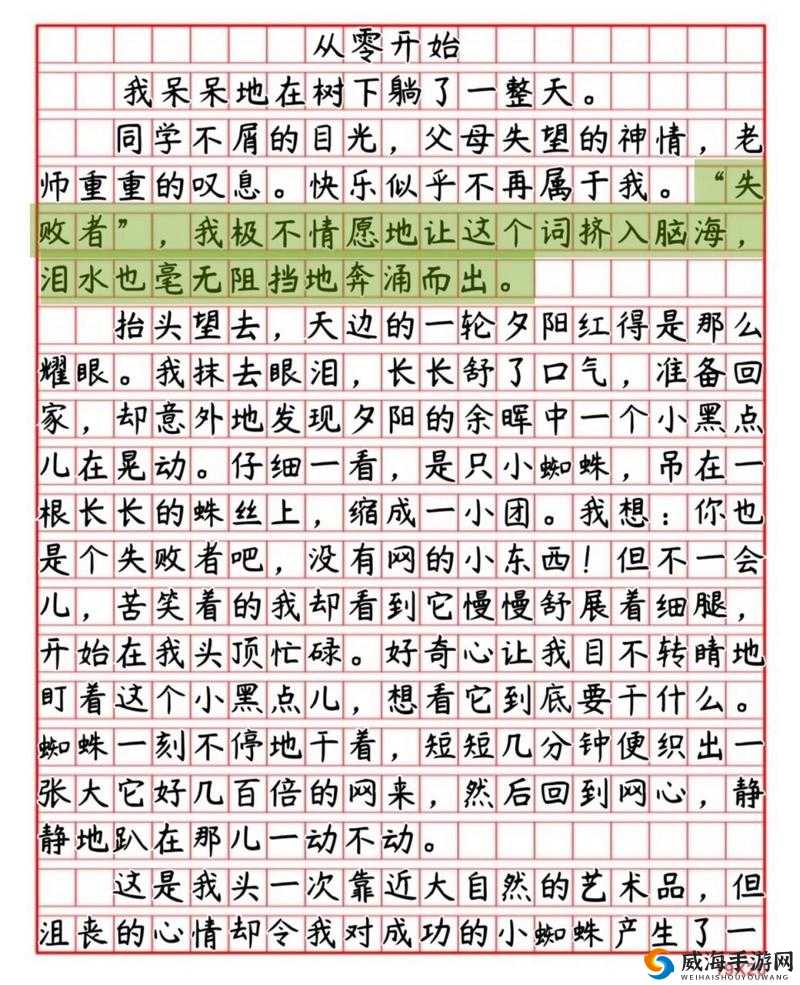 从零开始
我呆呆地在树下躺了一整天。
同学不屑的目光，父母失望的神情，老
师重重的叹息。快乐似乎不再属于我。“失
败者”，我极不情愿地让这个词挤入脑海，
泪水也毫无阻挡地奔涌而出。
抬头望去，天边的一轮夕阳红得是那么
耀眼。我抹去眼泪，长长舒了口气，准备回
家，却意外地发现夕阳的余晖中一个小黑点
儿在晃动。仔细一看，是只小蜘蛛，吊在一
根长长的蛛丝上，缩成一小团。我想：你也
是个失败者吧，没有网的小东西！但不一会
儿，苦笑着的我却看到它慢慢舒展着细腿，
开始在我头顶忙碌。好奇心让我目不转睛地
盯着这个小黑点儿，想看它到底要干什么。
蜘蛛一刻不停地干着，短短几分钟便织出一
张大它好几百倍的网来，然后回到网心，静
静地趴在那儿一动不动。
这是我头一次靠近大自然的艺术品，但
沮丧的心情却令我对成功的小蜘蛛产生了一
威海手游网
WEIHAISHOUYOUWANG